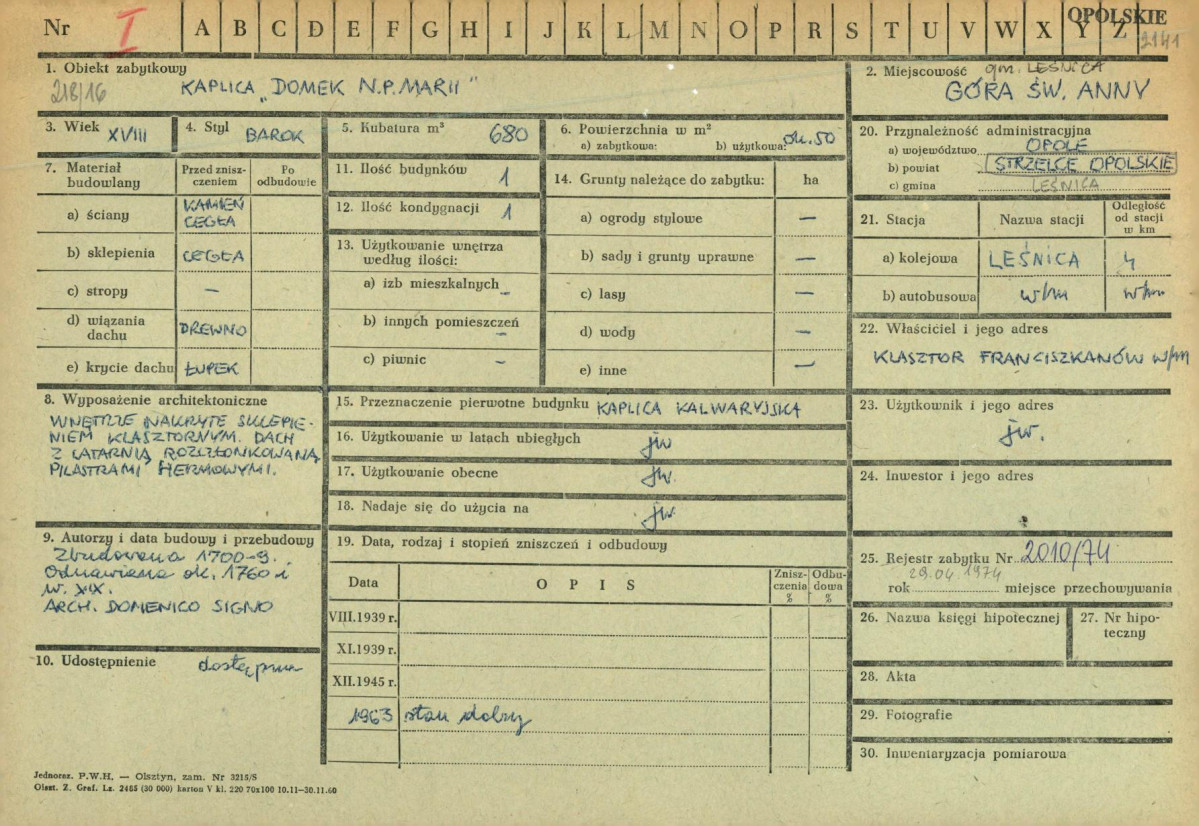 Nr I A B C D E F G H I J K L M N O P R S T U V W X Y Z
OPOLSKIE
2141
1. Obiekt zabytkowy
218/16
KAPLICA „DOMEK N.P. MARII"
2. Miejscowość gm. LEŚNICA
GÓRA ŚW. ANNY
3. Wiek XVIII
4. Styl BAROK
5. Kubatura m³ 680
6. Powierzchnia w m²
a) zabytkowa: b) użytkowa: ok. 50
7. Materiał budowlany
Przed zniszczeniem
Po odbudowie
a) ściany KAMIEŃ
CEGŁA
b) sklepienia CEGŁA
c) stropy –
d) wiązania dachu DREWNO
e) krycie dachu ŁUPEK
8. Wyposażenie architektoniczne
WNĘTRZE NAKRYTE SKLEPIE-
NIEM KLASZTORNYM. DACH
Z LATARNIĄ ROZCZŁONKOWANĄ
PILASTRAMI HERMOWYMI.
9. Autorzy i data budowy i przebudowy
Zbudowana 1700-9.
Odnawiana ok. 1760 i
w. XX.
ARCH. DOMENICO SIGNO
10. Udostępnienie dostępna
11. Ilość budynków 1
12. Ilość kondygnacji 1
13. Użytkowanie wnętrza
według ilości:
a) izb mieszkalnych –
b) innych pomieszczeń –
c) piwnic –
14. Grunty należące do zabytku: ha
a) ogrody stylowe –
b) sady i grunty uprawne –
c) lasy –
d) wody –
e) inne –
15. Przeznaczenie pierwotne budynku KAPLICA KALWARYJSKA
16. Użytkowanie w latach ubiegłych jw
17. Użytkowanie obecne jw.
18. Nadaje się do użycia na jw
19. Data, rodzaj i stopień zniszczeń i odbudowy
Data OPIS Znisz-
czenia
% Odbu-
dowa
%
VIII.1939 r.
XI.1939 r.
XII.1945 r.
1963 stan dobry
20. Przynależność administracyjna
a) województwo OPOLE
b) powiat STRZELCE OPOLSKIE
c) gmina LEŚNICA
21. Stacja Nazwa stacji Odległość
od stacji
w km
a) kolejowa LEŚNICA 4
b) autobusowa w/m w/m
22. Właściciel i jego adres
KLASZTOR FRANCISZKANÓW w/m
23. Użytkownik i jego adres
jw.
24. Inwestor i jego adres
25. Rejestr zabytku Nr 2010/74
29.04 1974
rok miejsce przechowywania
26. Nazwa księgi hipotecznej
27. Nr hipo-
teczny
28. Akta
29. Fotografie
30. Inwentaryzacja pomiarowa
Jednoraz. P.W.H. — Olsztyn, zam. Nr 3215/S
Olszt. Z. Graf. Lz. 2485 (30 000) karton V kl. 220 70x100 10.11-30.11.60